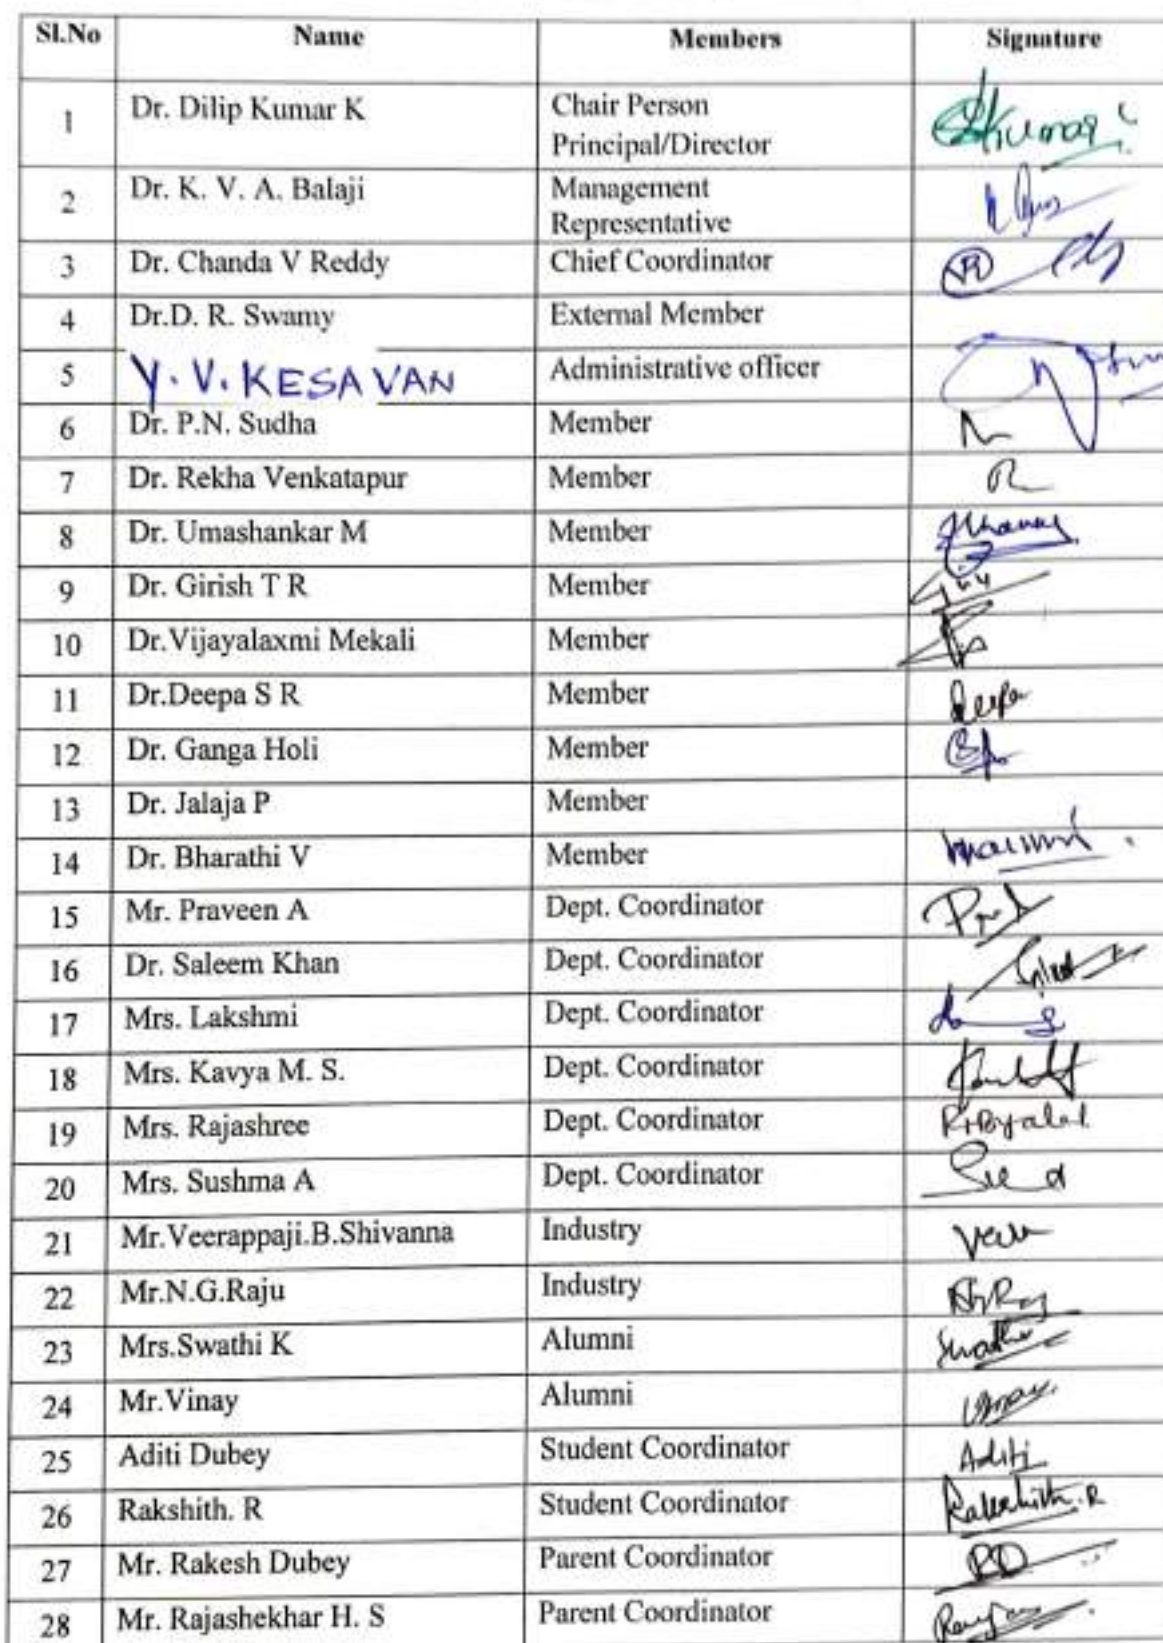 Sl.No Name Members Signature
1 Dr. Dilip Kumar K Chair Person
Principal/Director
2 Dr. K. V. A. Balaji Management
Representative
3 Dr. Chanda V Reddy Chief Coordinator
4 Dr.D. R. Swamy External Member
5 Y. V. KESAVAN Administrative officer
6 Dr. P.N. Sudha Member
7 Dr. Rekha Venkatapur Member
8 Dr. Umashankar M Member
9 Dr. Girish T R Member
10 Dr.Vijayalaxmi Mekali Member
11 Dr.Deepa S R Member Deepa
12 Dr. Ganga Holi Member
13 Dr. Jalaja P Member
14 Dr. Bharathi V Member
15 Mr. Praveen A Dept. Coordinator
16 Dr. Saleem Khan Dept. Coordinator
17 Mrs. Lakshmi Dept. Coordinator
18 Mrs. Kavya M. S. Dept. Coordinator
19 Mrs. Rajashree Dept. Coordinator
20 Mrs. Sushma A Dept. Coordinator
21 Mr.Veerappaji.B.Shivanna Industry
22 Mr.N.G.Raju Industry
23 Mrs.Swathi K Alumni Swathi
24 Mr.Vinay Alumni Vinay
25 Aditi Dubey Student Coordinator Aditi
26 Rakshith. R Student Coordinator Rakshith.R
27 Mr. Rakesh Dubey Parent Coordinator RD
28 Mr. Rajashekhar H. S Parent Coordinator